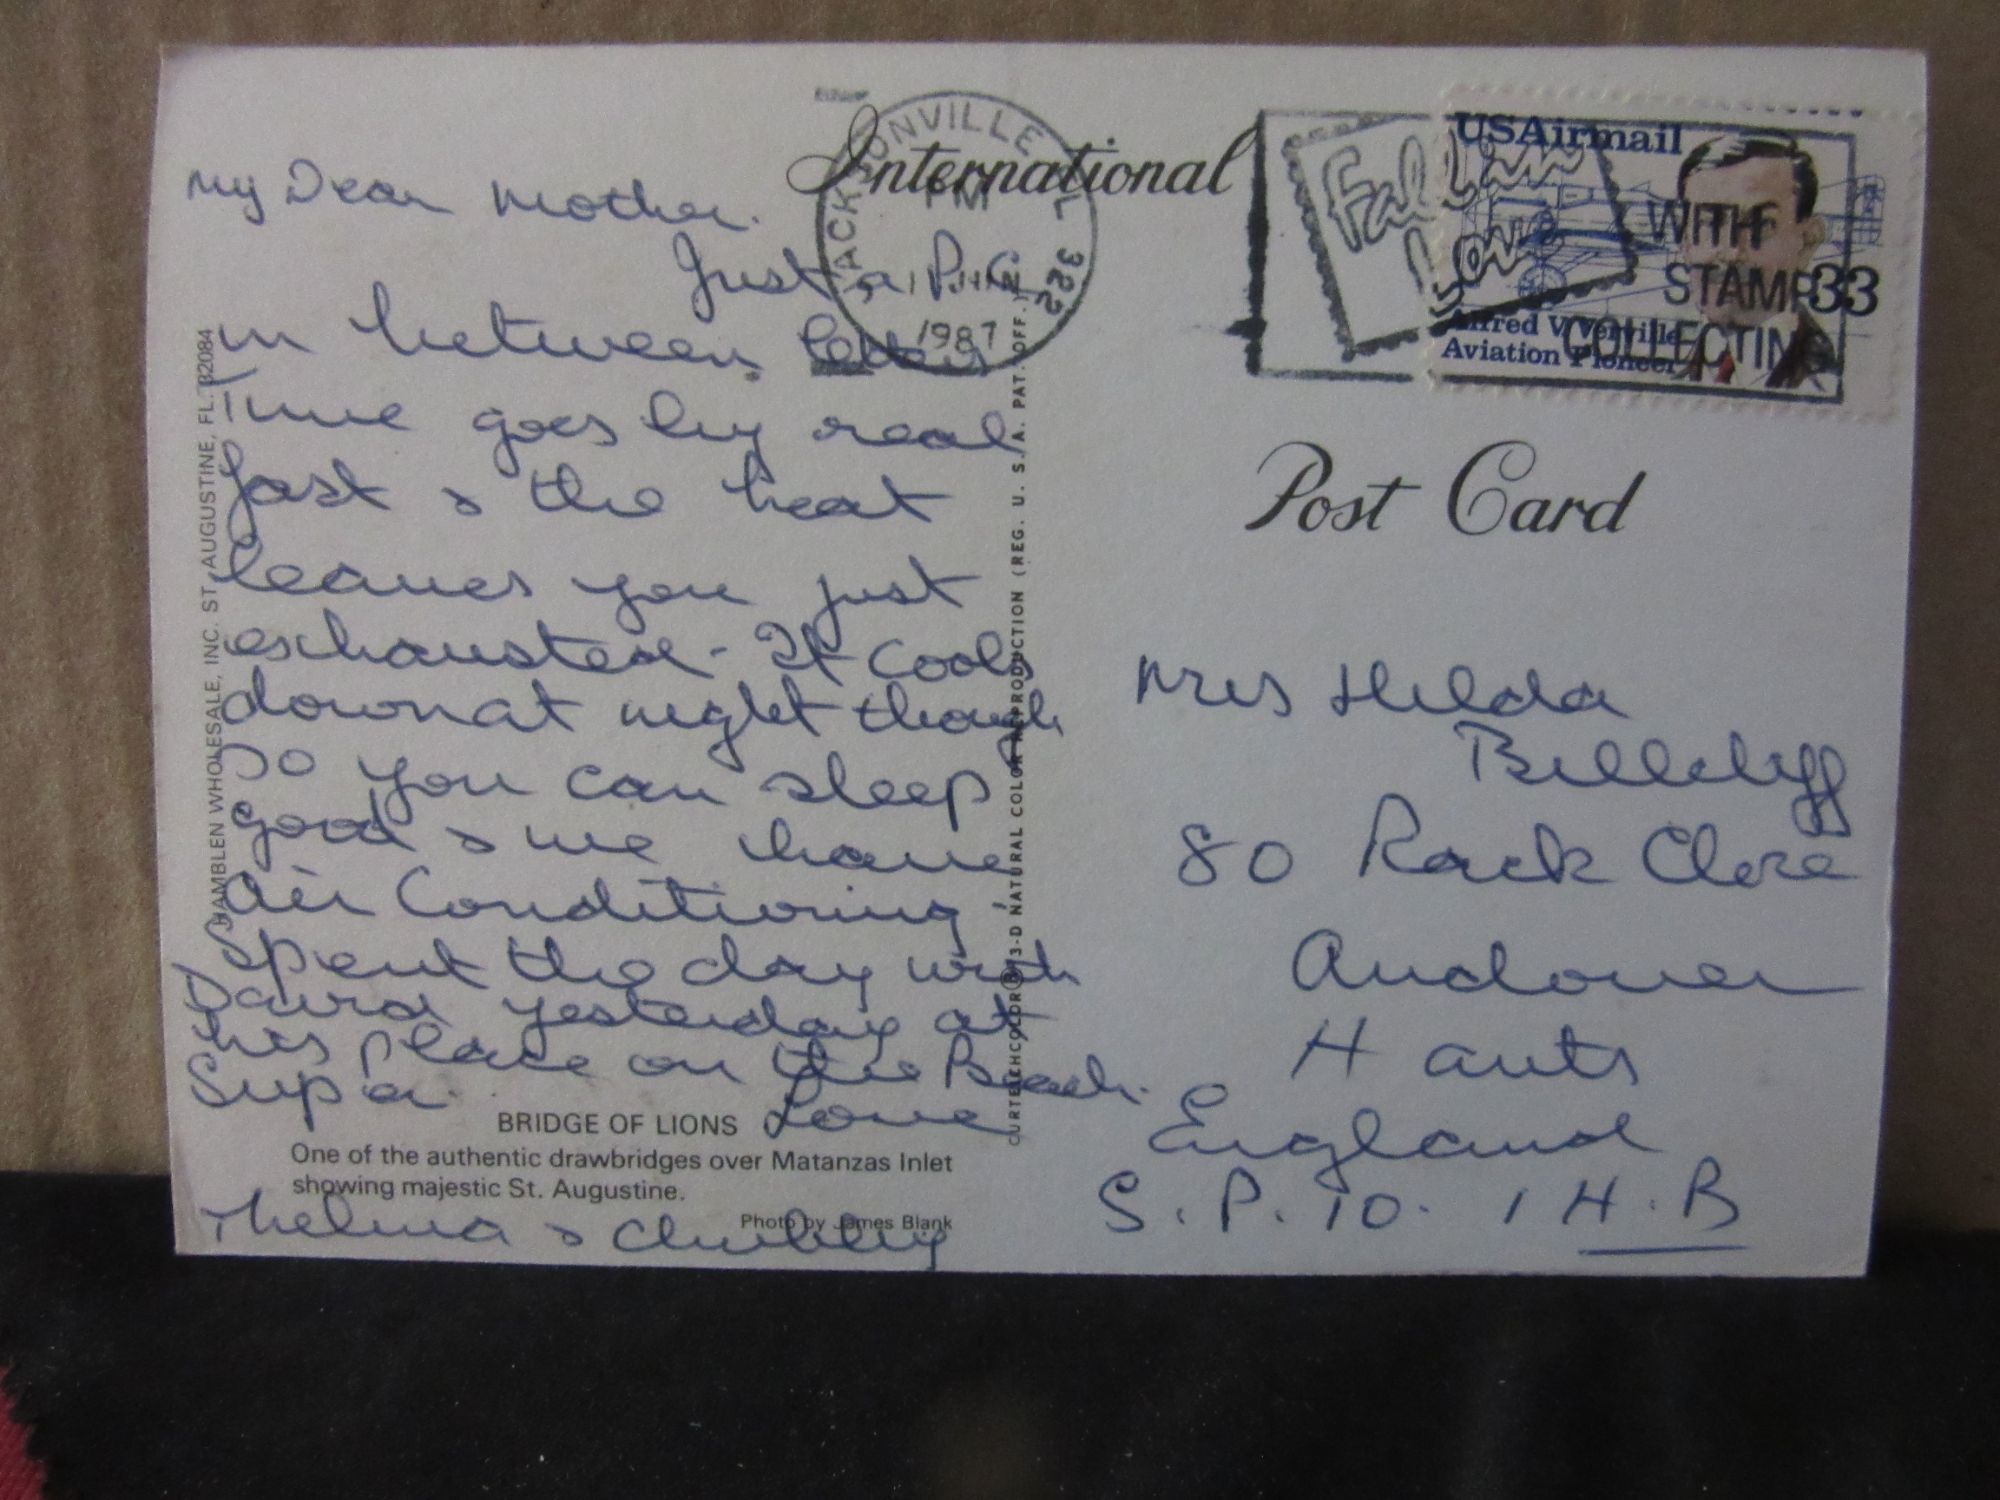 My Dear Mother.
Just a P.C.
in between letters
Time goes by real
fast & the heat
leaves you just
exhausted - It cools
down at night though
so you can sleep
good & we have
air Conditioning,
Spent the day with
David yesterday at
his place on the Beach.
Supa.
Love
Thelma & Chubby
BRIDGE OF LIONS
One of the authentic drawbridges over Matanzas Inlet
showing majestic St. Augustine.
Photo by James Blank
HAMBLEN WHOLESALE, INC. ST. AUGUSTINE, FL. 32084
CURTEICHCOLOR® 3-D NATURAL COLOR REPRODUCTION (REG. U. S. A. PAT. OFF.)
International
Post Card
JACKSONVILLE FL 322
PM
1987
Fall in
Love
WITH
STAMP
COLLECTING
USAirmail
33
Alfred V. Verville
Aviation Pioneer
Mrs Hilda
Billcliff
80 Rack Close
Andover
Hants
England
S.P.10. 1H.B